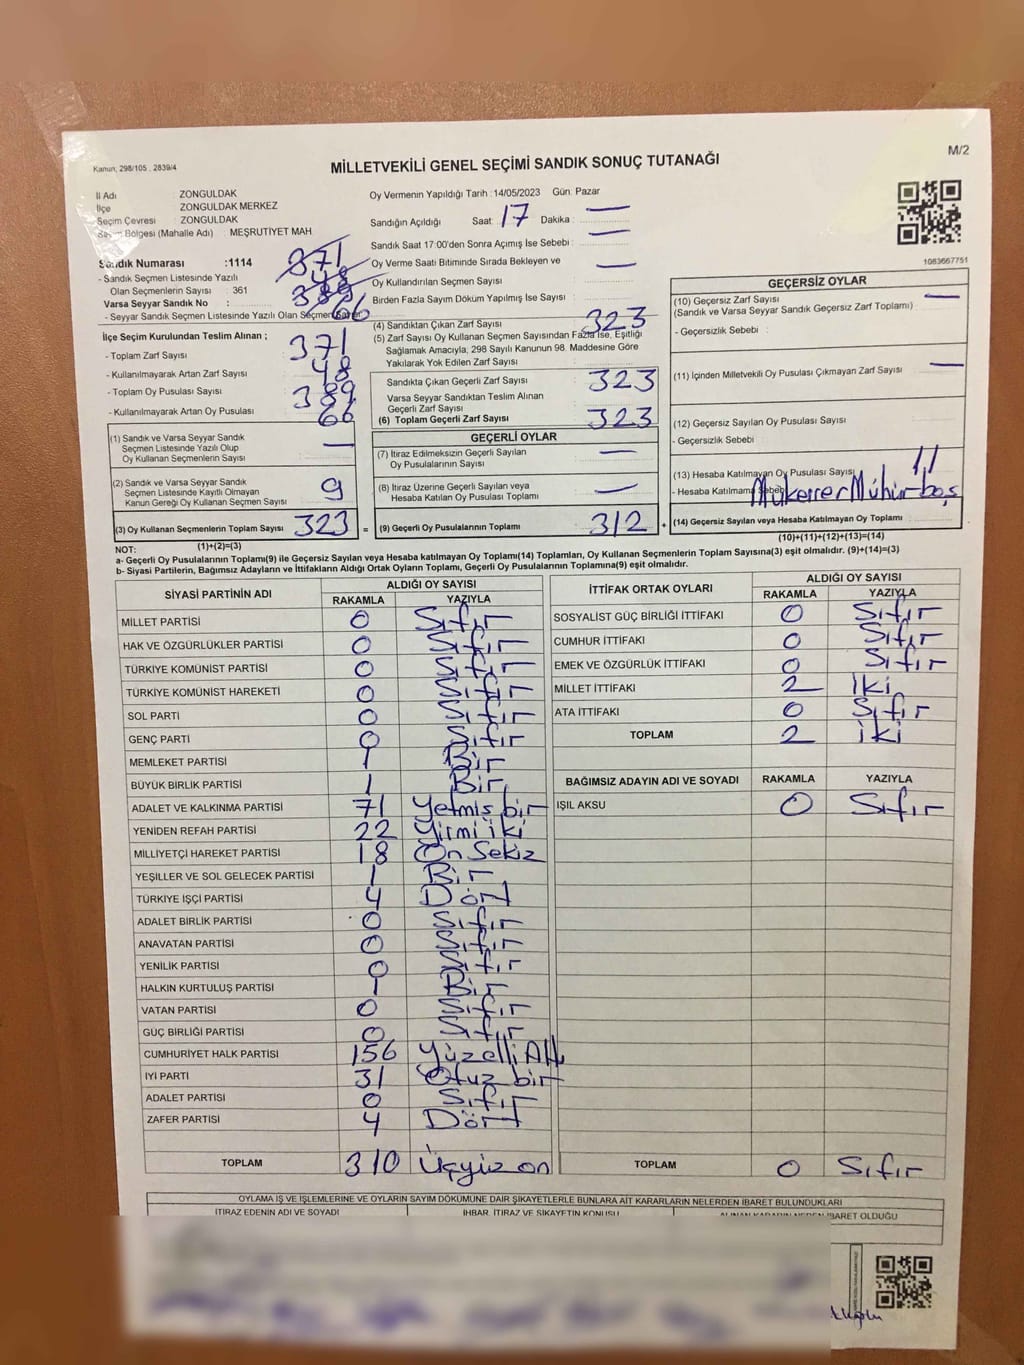 M/2
Kanun; 298/105 , 2839/4
MİLLETVEKİLİ GENEL SEÇİMİ SANDIK SONUÇ TUTANAĞI
İl Adı : ZONGULDAK
İlçe : ZONGULDAK MERKEZ
Seçim Çevresi : ZONGULDAK
Seçim Bölgesi (Mahalle Adı) : MEŞRUTİYET MAH
Sandık Numarası :1114
371
- Sandık Seçmen Listesinde Yazılı
48
Olan Seçmenlerin Sayısı : 361
389
Varsa Seyyar Sandık No :
66
- Seyyar Sandık Seçmen Listesinde Yazılı Olan Seçmen
İlçe Seçim Kurulundan Teslim Alınan ;
- Toplam Zarf Sayısı 371
- Kullanılmayarak Artan Zarf Sayısı 48
- Toplam Oy Pusulası Sayısı 389
- Kullanılmayarak Artan Oy Pusulası 66
(1) Sandık ve Varsa Seyyar Sandık
Seçmen Listesinde Yazılı Olup
Oy Kullanan Seçmenlerin Sayısı —
(2) Sandık ve Varsa Seyyar Sandık
Seçmen Listesinde Kayıtlı Olmayan
Kanun Gereği Oy Kullanan Seçmen Sayısı 9
(3) Oy Kullanan Seçmenlerin Toplam Sayısı 323 =
(1)+(2)=(3)
Oy Vermenin Yapıldığı Tarih : 14/05/2023 Gün: Pazar
Sandığın Açıldığı Saat: 17 Dakika : —
Sandık Saat 17:00'den Sonra Açılmış İse Sebebi : —
Oy Verme Saati Bitiminde Sırada Bekleyen ve
Oy Kullandırılan Seçmen Sayısı : —
Birden Fazla Sayım Döküm Yapılmış İse Sayısı :
(4) Sandıktan Çıkan Zarf Sayısı 323
(5) Zarf Sayısı Oy Kullanan Seçmen Sayısından Fazla İse, Eşitliği
Sağlamak Amacıyla, 298 Sayılı Kanunun 98. Maddesine Göre
Yakılarak Yok Edilen Zarf Sayısı :
Sandıkta Çıkan Geçerli Zarf Sayısı : 323
Varsa Seyyar Sandıktan Teslim Alınan
Geçerli Zarf Sayısı
(6) Toplam Geçerli Zarf Sayısı : 323
GEÇERLİ OYLAR
(7) İtiraz Edilmeksizin Geçerli Sayılan
Oy Pusulalarının Sayısı —
(8) İtiraz Üzerine Geçerli Sayılan veya
Hesaba Katılan Oy Pusulası Toplamı —
(9) Geçerli Oy Pusulalarının Toplamı : 312 +
1083667751
GEÇERSİZ OYLAR
(10) Geçersiz Zarf Sayısı —
(Sandık ve Varsa Seyyar Sandık Geçersiz Zarf Toplamı)
- Geçersizlik Sebebi :
(11) İçinden Milletvekili Oy Pusulası Çıkmayan Zarf Sayısı —
(12) Geçersiz Sayılan Oy Pusulası Sayısı
- Geçersizlik Sebebi :
(13) Hesaba Katılmayan Oy Pusulası Sayısı 11
- Hesaba Katılmama Sebebi Mükerrer Mühür boş
(14) Geçersiz Sayılan veya Hesaba Katılmayan Oy Toplamı
(10)+(11)+(12)+(13)=(14)
NOT:
a- Geçerli Oy Pusulalarının Toplamı(9) ile Geçersiz Sayılan veya Hesaba katılmayan Oy Toplamı(14) Toplamları, Oy Kullanan Seçmenlerin Toplam Sayısına(3) eşit olmalıdır. (9)+(14)=(3)
b- Siyasi Partilerin, Bağımsız Adayların ve İttifakların Aldığı Ortak Oyların Toplamı, Geçerli Oy Pusulalarının Toplamına(9) eşit olmalıdır.
SİYASİ PARTİNİN ADI ALDIĞI OY SAYISI
RAKAMLA YAZIYLA
MİLLET PARTİSİ 0 Sıfır
HAK VE ÖZGÜRLÜKLER PARTİSİ 0 Sıfır
TÜRKİYE KOMÜNİST PARTİSİ 0 Sıfır
TÜRKİYE KOMÜNİST HAREKETİ 0 Sıfır
SOL PARTİ 0 Sıfır
GENÇ PARTİ 0 Sıfır
MEMLEKET PARTİSİ 1 Bir
BÜYÜK BİRLİK PARTİSİ 1 Bir
ADALET VE KALKINMA PARTİSİ 71 Yetmiş bir
YENİDEN REFAH PARTİSİ 22 Yirmi iki
MİLLİYETÇİ HAREKET PARTİSİ 18 On Sekiz
YEŞİLLER VE SOL GELECEK PARTİSİ 1 Bir
TÜRKİYE İŞÇİ PARTİSİ 4 Dört
ADALET BİRLİK PARTİSİ 0 Sıfır
ANAVATAN PARTİSİ 0 Sıfır
YENİLİK PARTİSİ 0 Sıfır
HALKIN KURTULUŞ PARTİSİ 1 Bir
VATAN PARTİSİ 0 Sıfır
GÜÇ BİRLİĞİ PARTİSİ 0 Sıfır
CUMHURİYET HALK PARTİSİ 156 Yüzelli Altı
İYİ PARTİ 31 Otuz bir
ADALET PARTİSİ 0 Sıfır
ZAFER PARTİSİ 4 Dört
TOPLAM 310 Üçyüz on
İTTİFAK ORTAK OYLARI ALDIĞI OY SAYISI
RAKAMLA YAZIYLA
SOSYALİST GÜÇ BİRLİĞİ İTTİFAKI 0 Sıfır
CUMHUR İTTİFAKI 0 Sıfır
EMEK VE ÖZGÜRLÜK İTTİFAKI 0 Sıfır
MİLLET İTTİFAKI 2 İki
ATA İTTİFAKI 0 Sıfır
TOPLAM 2 iki
BAĞIMSIZ ADAYIN ADI VE SOYADI RAKAMLA YAZIYLA
IŞIL AKSU 0 Sıfır
TOPLAM 0 Sıfır
OYLAMA İŞ VE İŞLEMLERİNE VE OYLARIN SAYIM DÖKÜMÜNE DAİR ŞİKAYETLERLE BUNLARA AİT KARARLARIN NELERDEN İBARET BULUNDUKLARI
İTİRAZ EDENİN ADI VE SOYADI İHBAR, İTİRAZ VE ŞİKAYETİN KONUSU ALINAN KARARIN NEDEN İBARET OLDUĞU